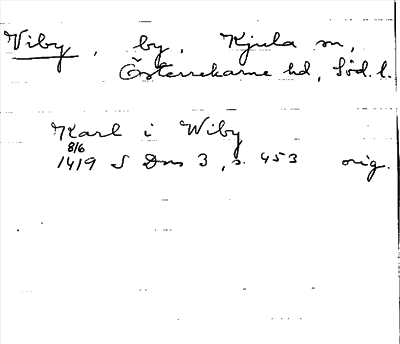 Viby, by, Kjula sn,
Österrekarne hd, Söd. l.
Karl i Wiby
8/6
1419 S Dns 3, s. 453 orig.